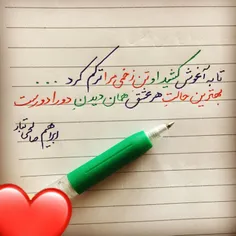 تا به آغوش کشید او تن زخمی مرا ترکم کرد ...
بهترین حالت هر عشق همان دیدن دورادور است
ابراهیم صالحی تبار